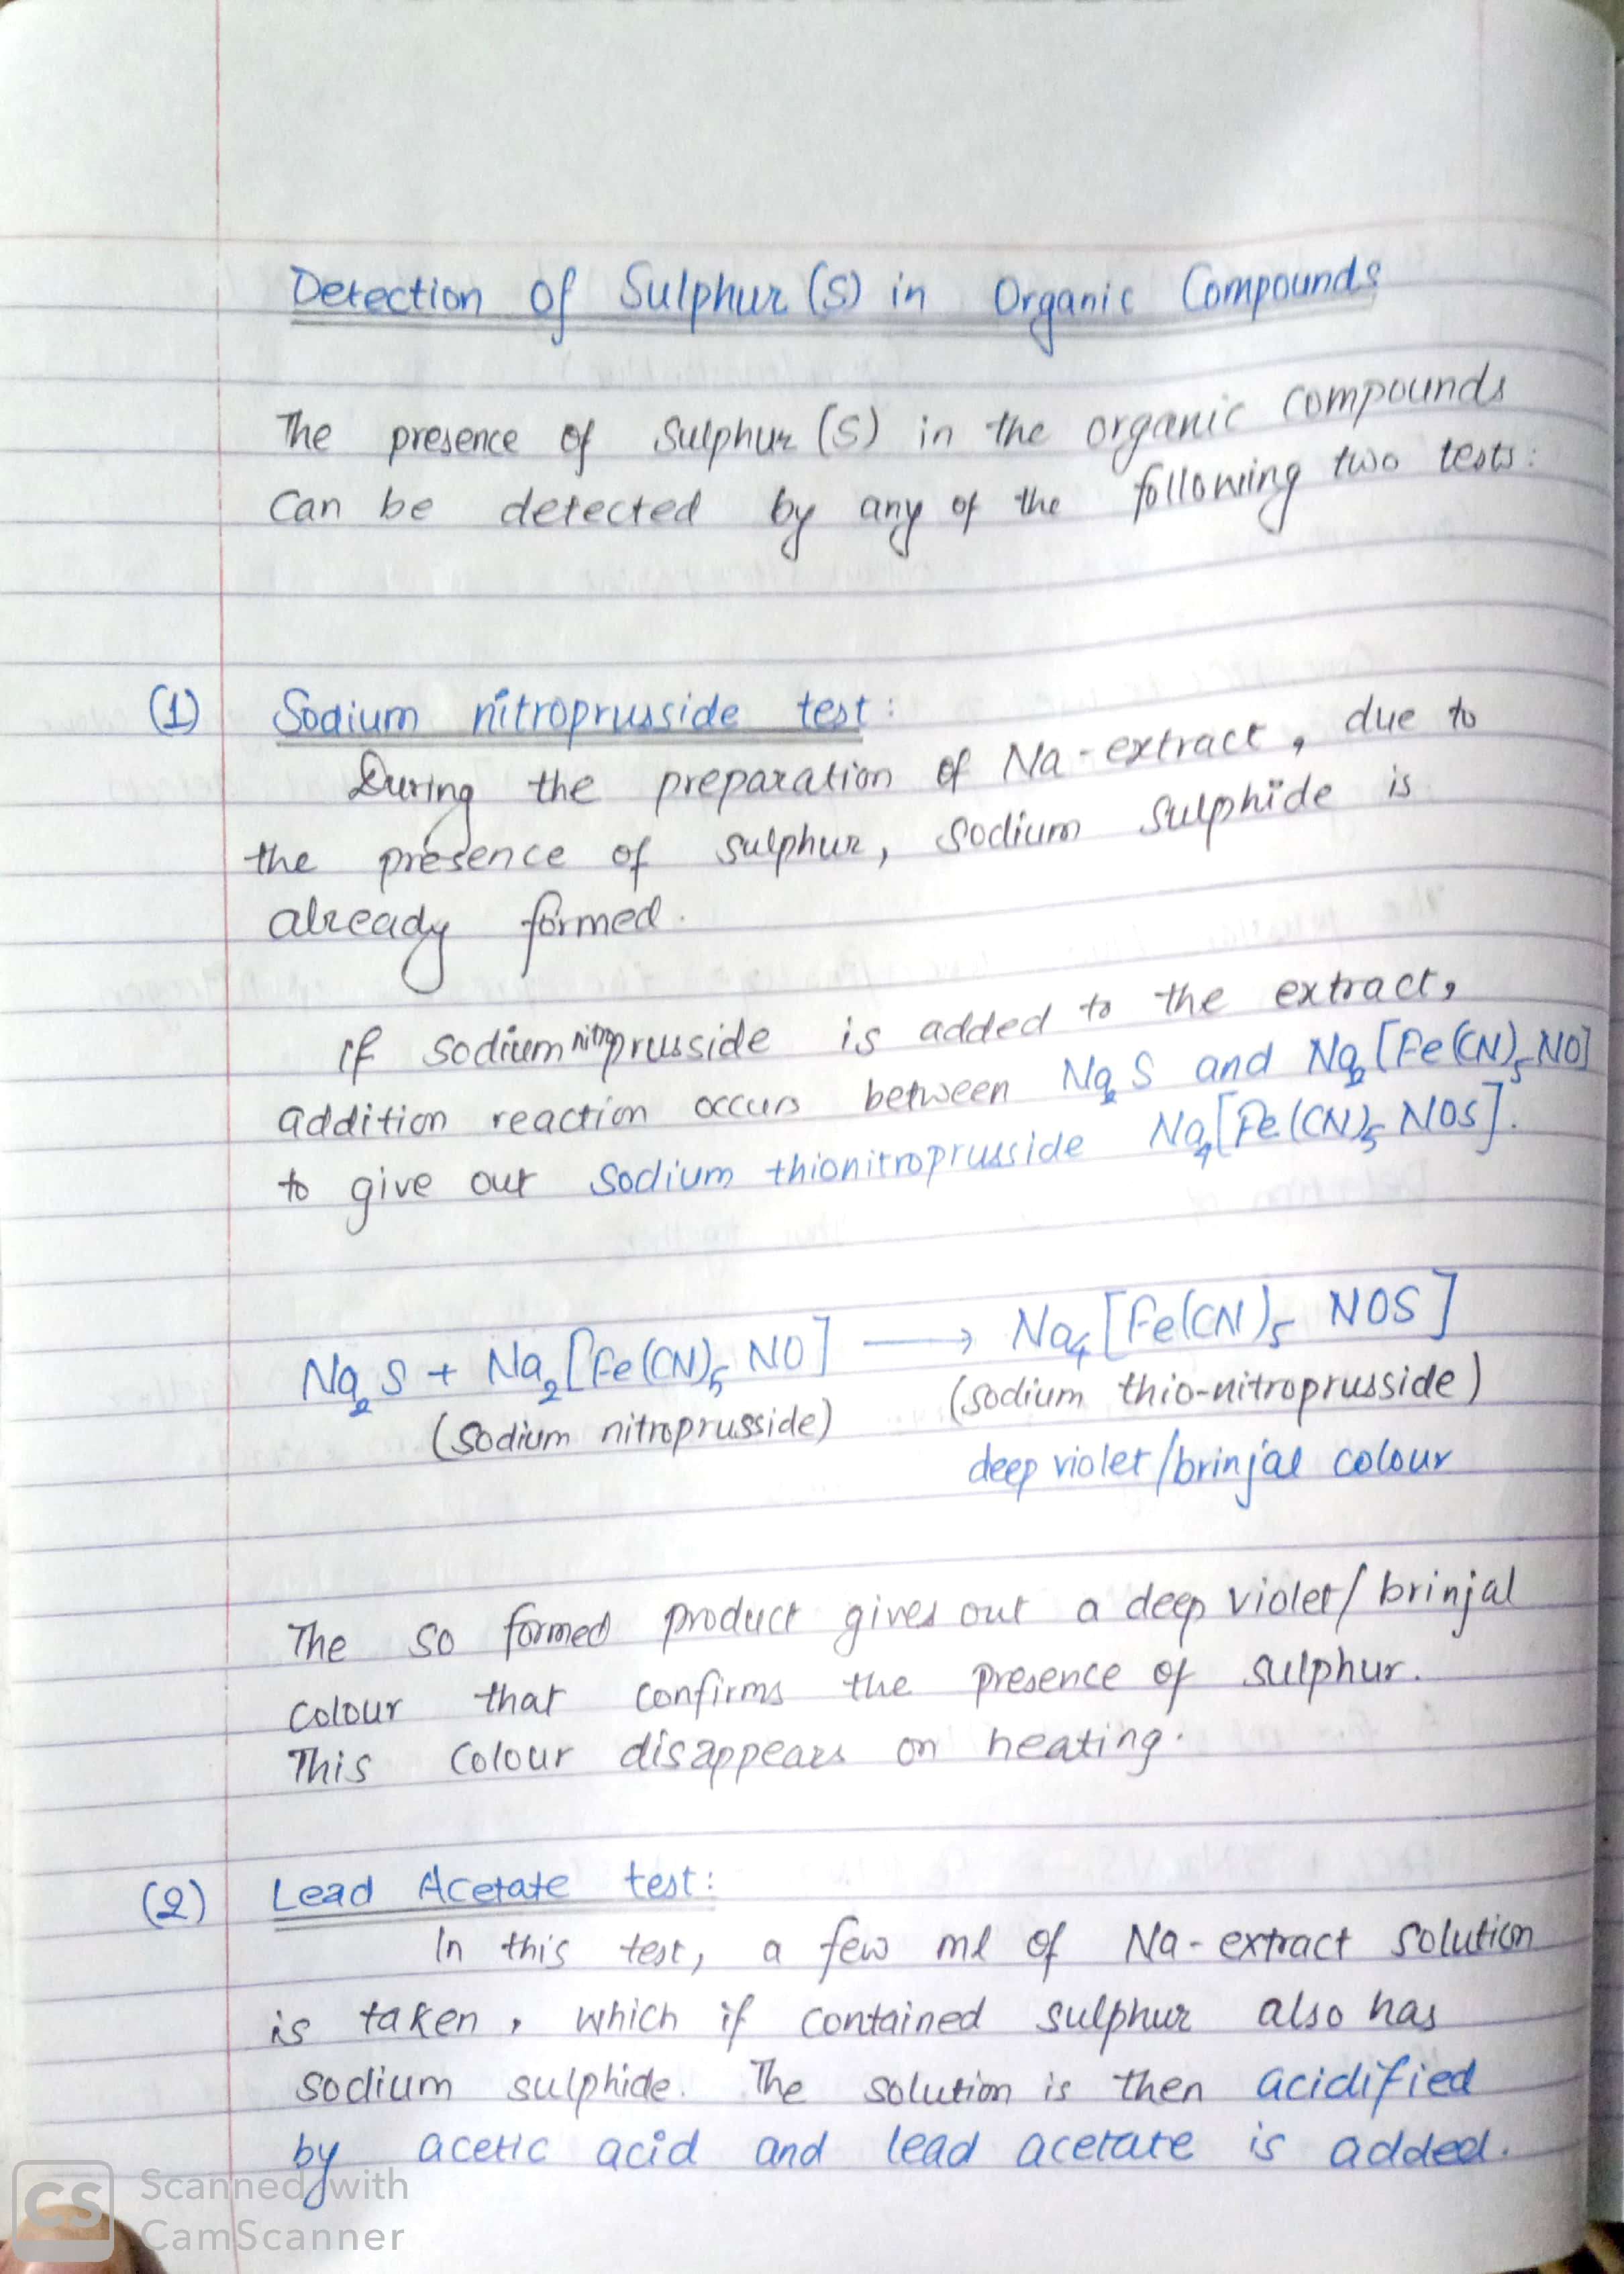 Detection of Sulphur (S) in Organic Compounds
The presence of Sulphur (S) in the organic compounds
can be detected by any of the following two tests:
(1) Sodium nitroprusside test:
During the preparation of Na-extract, due to
the presence of sulphur, sodium sulphide is
already formed.
if sodium nitroprusside is added to the extract,
addition reaction occurs between Na₂S and Na₂[Fe(CN)₅NO]
to give out sodium thionitroprusside Na₄[Fe(CN)₅NOS].
Na₂S + Na₂[Fe(CN)₅NO] → Na₄[Fe(CN)₅NOS]
(Sodium nitroprusside) (sodium thio-nitroprusside)
deep violet/brinjal colour
The so formed product gives out a deep violet/brinjal
colour that confirms the presence of sulphur.
This colour disappears on heating.
(2) Lead Acetate test:
In this test, a few ml of Na-extract solution
is taken, which if contained sulphur also has
sodium sulphide. The solution is then acidified
by acetic acid and lead acetate is added.
CS Scanned with
CamScanner